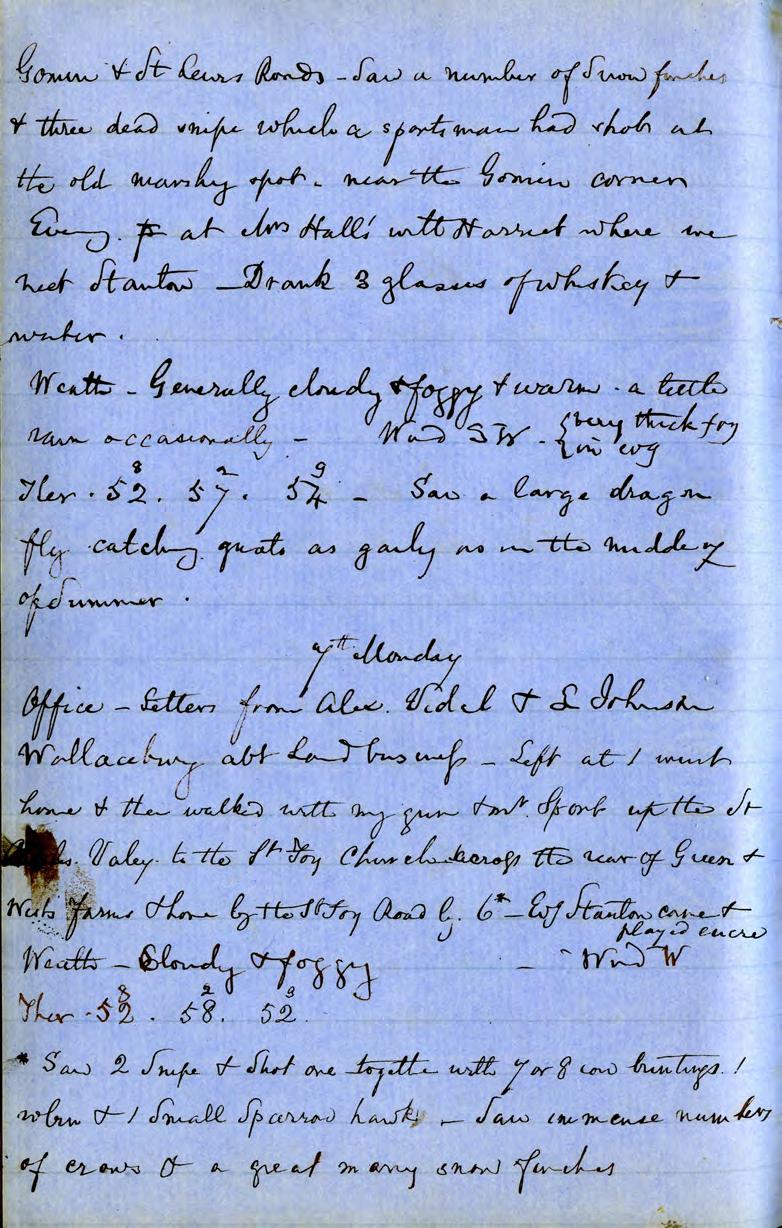 Gomin & St Lewis Roads - Saw a number of Snow finches
& three dead snipe which a sportsman had shot at
the old marshy spot - near the Gomin corner
Eveng. at Mrs Hall's with Harriet where we
met Stanton - Drank 3 glasses of whiskey &
water.
Weath - Generally cloudy & foggy & warm - a little
rain occasionally - Wind SW - {very thick fog
{in evg
8 2 9
Ther. 52. 57. 54 - Saw a large dragon
fly catching gnats as gaily as in the middle of
of Summer.
7th Monday
Office - Letters from Alex. Vidal & L Johnson
Wallaceburg abt Land business - Left at 1 went
home & then walked with my gun & Sport up the St
Valey to the St Foy Church across the rear of Green &
Wests farms & home by the St Foy Road by 6* - Evg Stanton came &
played eucre
Weath - Cloudy & foggy - Wind W
8 2 9
Ther. 52. 58. 52.
* Saw 2 Snipe & Shot one together with 7 or 8 cow buntings. 1
& 1 Small Sparrow hawk - Saw immense numbers
of crows & a great many snow finches